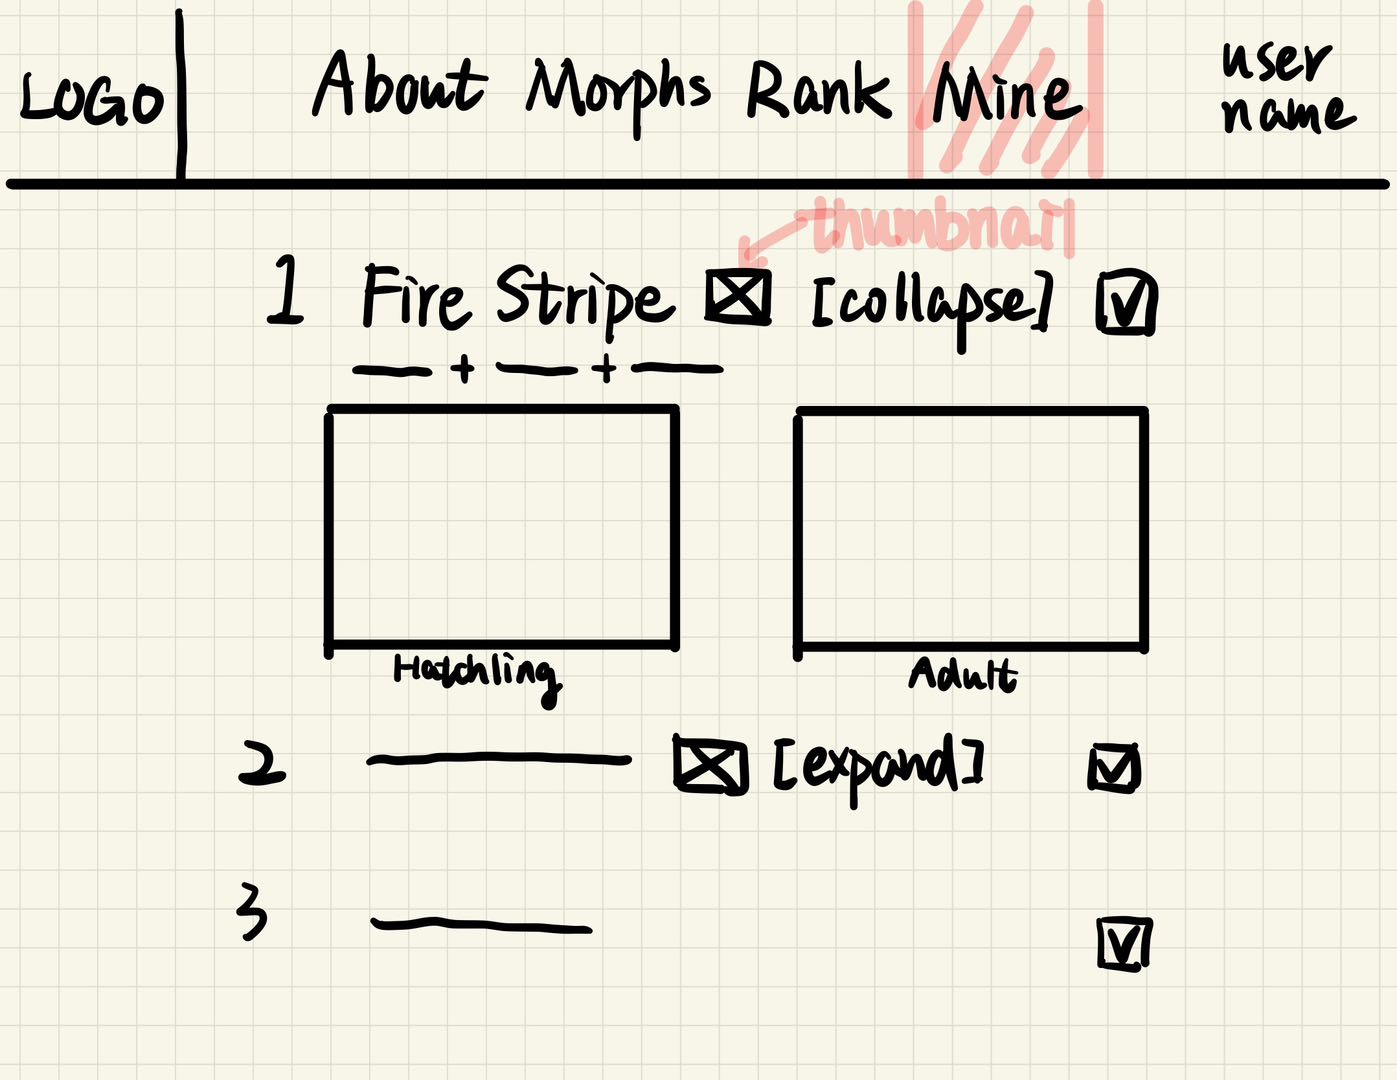 LOGO About Morphs Rank Mine user name
thumbnail
1 Fire Stripe [collapse]
+ +
Hatchling Adult
2 [expand]
3